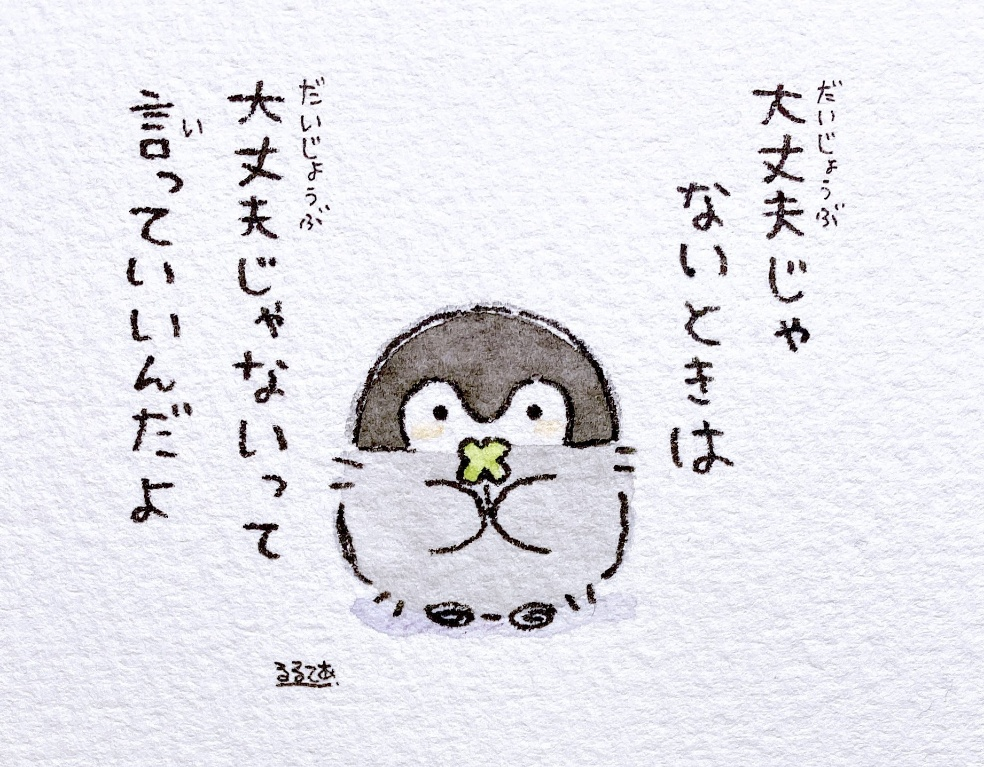 大丈夫じゃ
だいじょうぶ
ないときは
大丈夫じゃないって
だいじょうぶ
言っていいんだよ
い
るるてあ